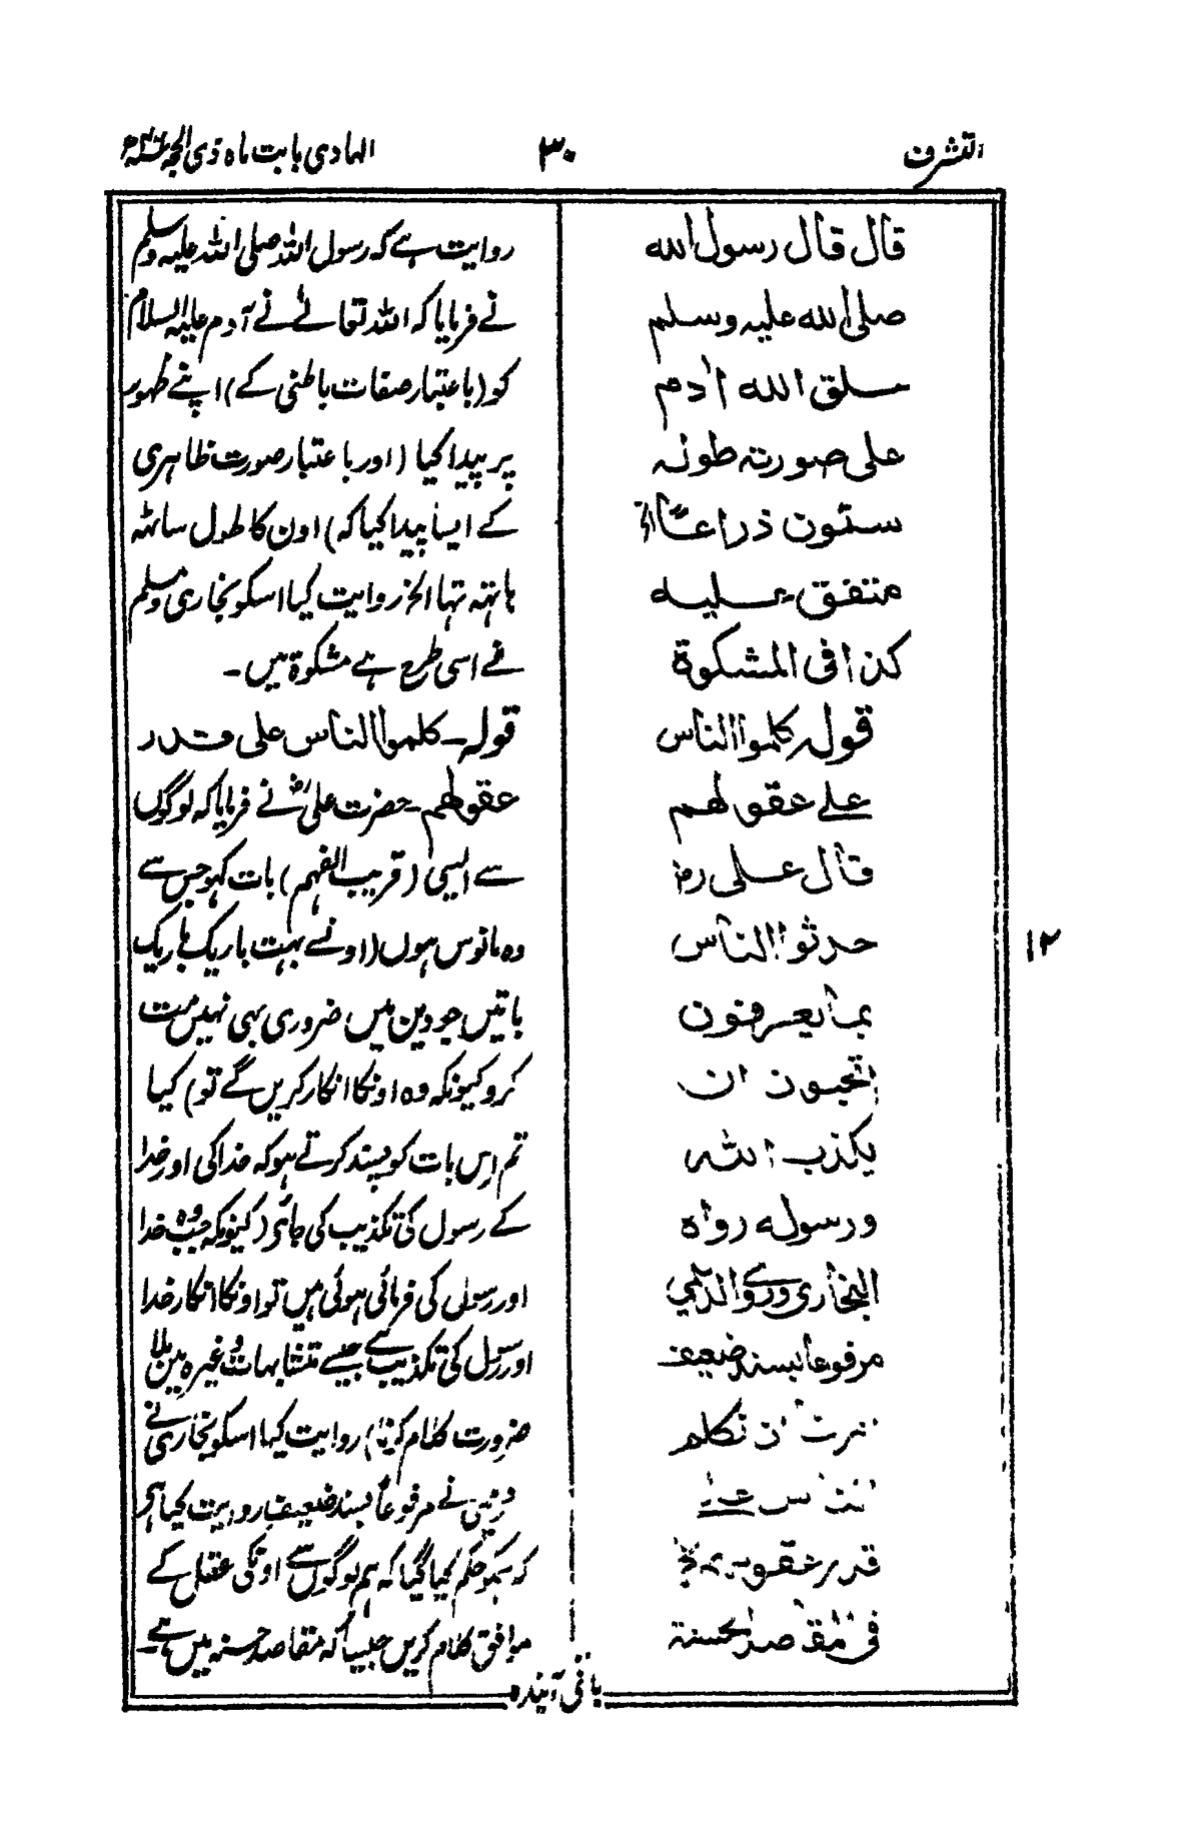 التشرف
۳۰
الہادی بابت ماہ ذی الحجہ
قال قال رسول الله
صلى الله عليه وسلم
خلق الله آدم
على صورته طوله
ستون ذراعًا الخ
متفق عليه
كذا فى المشكوة
قوله كلموا الناس
على عقولهم
قال على رض
حدثوا الناس
بما يعرفون
اتحبون ان
يكذب الله
ورسوله رواه
البخارى وروى الديلمي
مرفوعا بسند ضعيف
امرت ان نكلم
الناس على
قدر عقولهم كذا
فى المقاصد الحسنة
روایت ہے کہ رسول اللہ صلی اللہ علیہ وسلم
نے فرمایا کہ اللہ تعالےٰ نے آدم علیہ السلام
کو (باعتبار صفات باطنی کے) اپنے ظہور
پر پیدا کیا (اور باعتبار صورت ظاہری
کے ایسا پیدا کیا کہ) اون کا طول ساٹھہ
ہاتہہ تہا الخ روایت کیا اسکو بخاری ومسلم
نے اسی طرح ہے مشکوۃ میں۔
قولہ۔ کلموا الناس علی قدر
عقولھم۔ حضرت علیؓ نے فرمایا کہ لوگوں
سے ایسی (قریب الفہم) بات کہو جس سے
وہ مانوس ہوں (اونسے بہت باریک باریک
باتیں جو دین میں ضروری بہی نہیں مت
کرو کیونکہ وہ اونکا انکار کریں گے تو) کیا
تم اس بات کو پسند کرتے ہو کہ خدا کی اور خدا
کے رسول کی تکذیب کی جائے (کیونکہ جب وہ خدا
اور رسول کی فرمائی ہوئی ہیں تو اونکا انکار خدا
اور رسول کی تکذیب ہے جیسے متشابہات وغیرہ میں بلا
ضرورت کلام کرنا) روایت کیا اسکو بخاری نے
نے مرفوعاً بسند ضعیف روایت کیا ہے
کہ ہمکو حکم کیا گیا کہ ہم لوگوں سے اونکی عقل کے
موافق کلام کریں جیسا کہ مقاصد حسنہ میں ہے۔
۱۲
باقی آیندہ